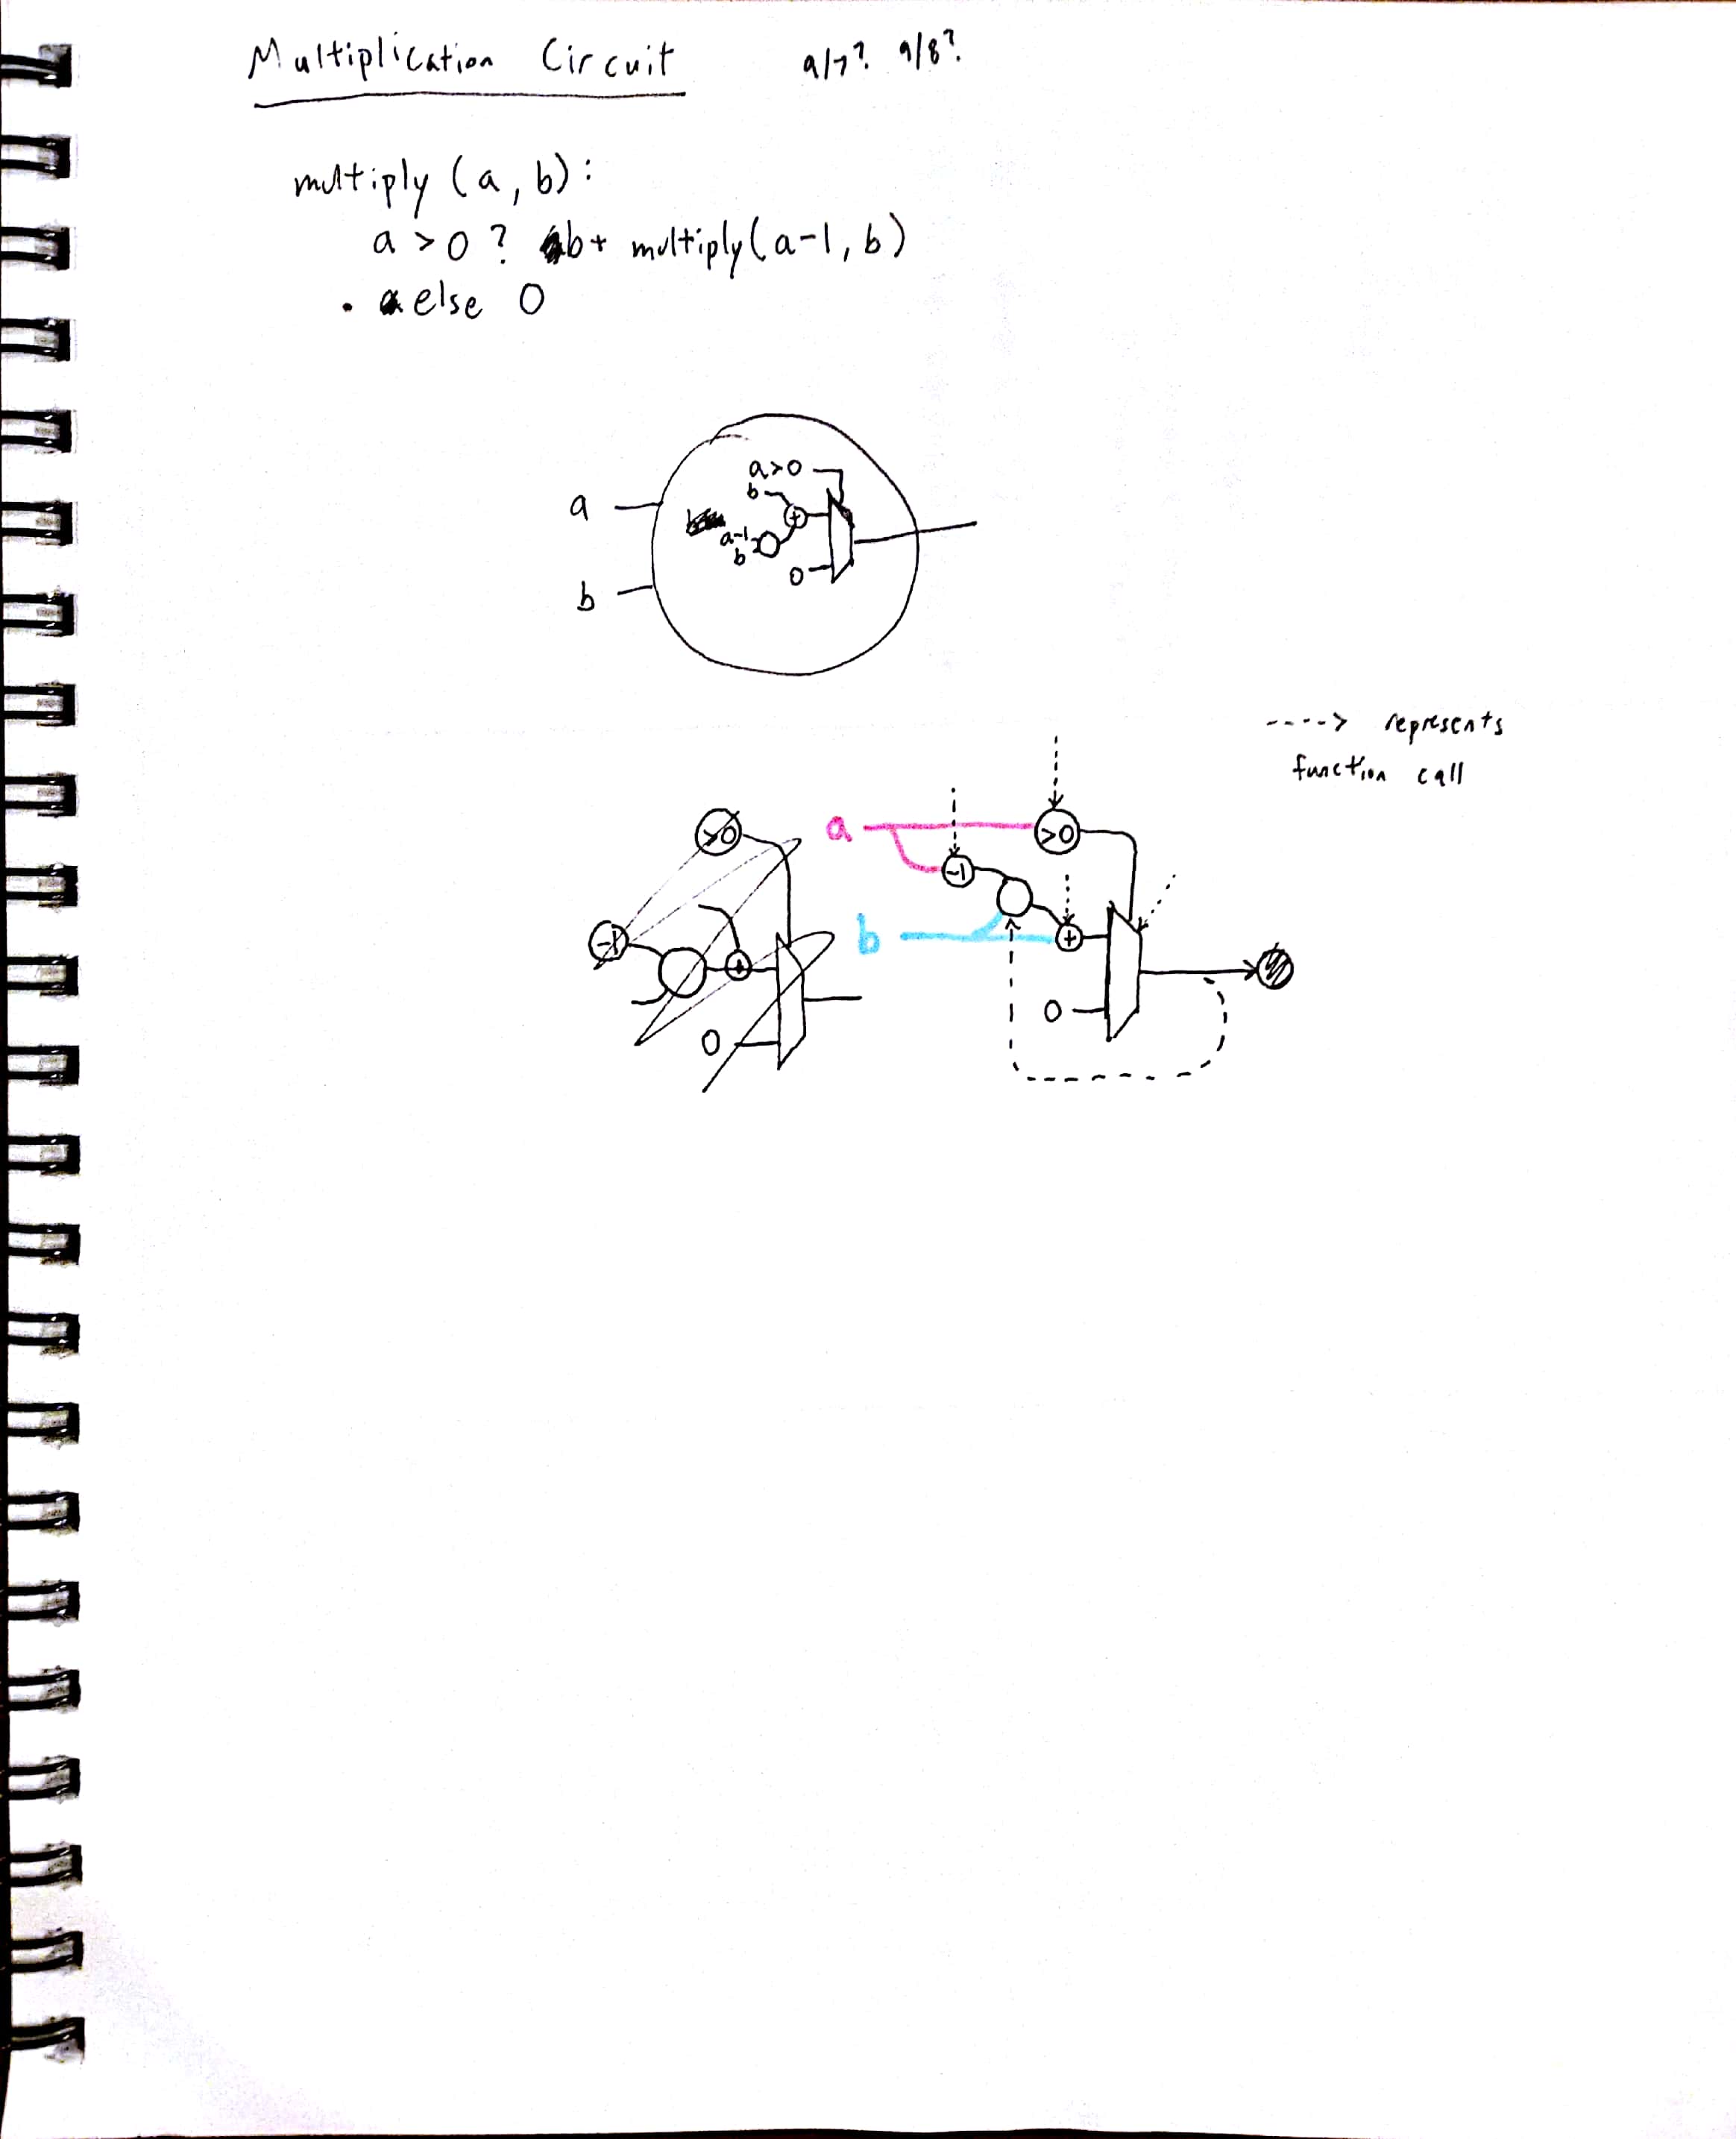 Multiplication Circuit 9/7? 9/8?
multiply (a, b):
a > 0 ? b + multiply(a-1, b)
else 0
a>0
b
a
+
a-1
b
0
b
----> represents
function call
>0
a
>0
-1
b
+
-1
+
0
0